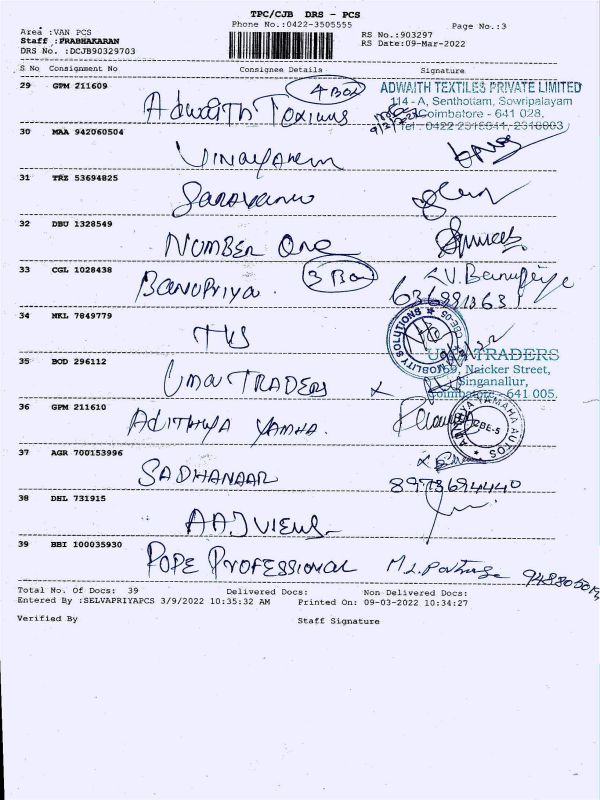 TPC/CJB DRS - PCS
Phone No.:0422-3505555
Page No.:3
Area :VAN PCS
Staff :PRABHAKARAN
DRS No. :DCJB90329703
RS No.:903297
RS Date:09-Mar-2022
S No Consignment No Consignee Details Signature
29 GPM 211609
4 Box
ADWAITH TEXTILES PRIVATE LIMITED
114 - A, Senthottam, Sowripalayam
Coimbatore - 641 028.
Adwaith
9/3/2022
30 MAA 942060504
Vinayakem
31 TRZ 53694825
Saravanan
32 DBU 1328549
Number One
33 CGL 1028438
3 Box
Banupriya
V. Banupriya
34 NKL 7849779
TVS
MOBILITY SOLUTIONS
35 BOD 296112
Uma Traders
UMA TRADERS
Naicker Street,
Singanallur,
Coimbatore - 641 005.
36 GPM 211610
Adithya Yamha.
ADITHYA YAMAHA AUTOS
CBE-5
37 AGR 700153996
Sadhanaar
8973694440
38 DHL 731915
39 BBI 100035930
Pope Professional
Total No. Of Docs: 39 Delivered Docs: Non Delivered Docs:
Entered By :SELVAPRIYAPCS 3/9/2022 10:35:32 AM Printed On: 09-03-2022 10:34:27
Verified By Staff Signature